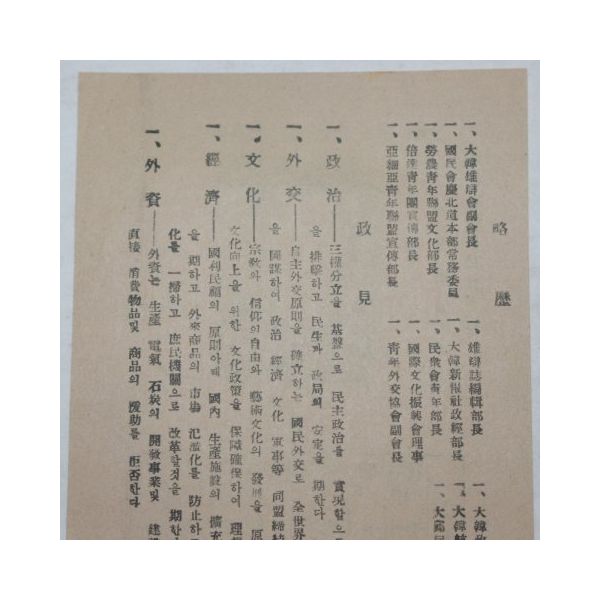 略歷
一、大韓雄辯會副會長 一、雄辯誌編輯部長 一、大韓
一、國民會慶北道本部常務委員 一、大韓新報社政經部長 一、大韓
一、勞農青年聯盟文化部長 一、民衆會青年部長 一、大
一、倍達青年團宣傳部長 一、國際文化振興會理事
一、亞細亞青年聯盟宣傳部長 一、青年外交協會副會長
政見
一、政治──三權分立을 基盤으로 民主政治를 實現함으로
을 排擊하고 民生과 政局의 安定을 期한다
一、外交──自主外交原則을 確立하는 國民外交로 全世界
을 圖謀하여 政治 經濟 文化 軍事等 同盟締結
一、文化──宗敎와 信仰의自由와 藝術文化의 發展을 原
文化向上을 위한 文化政策을 保障確保하여 理
一、經濟──國利民福의 原則아래 國內 生產施設의 擴充
을 期하고 外來商品의 市場 氾濫化를 防止하
化를 一掃하고 庶民機關으로 改革할것을 期한
一、外資──外資는 生產 電氣 石炭의 開發事業및 建
直接 消費物品및 商品의 援助를 拒否한다